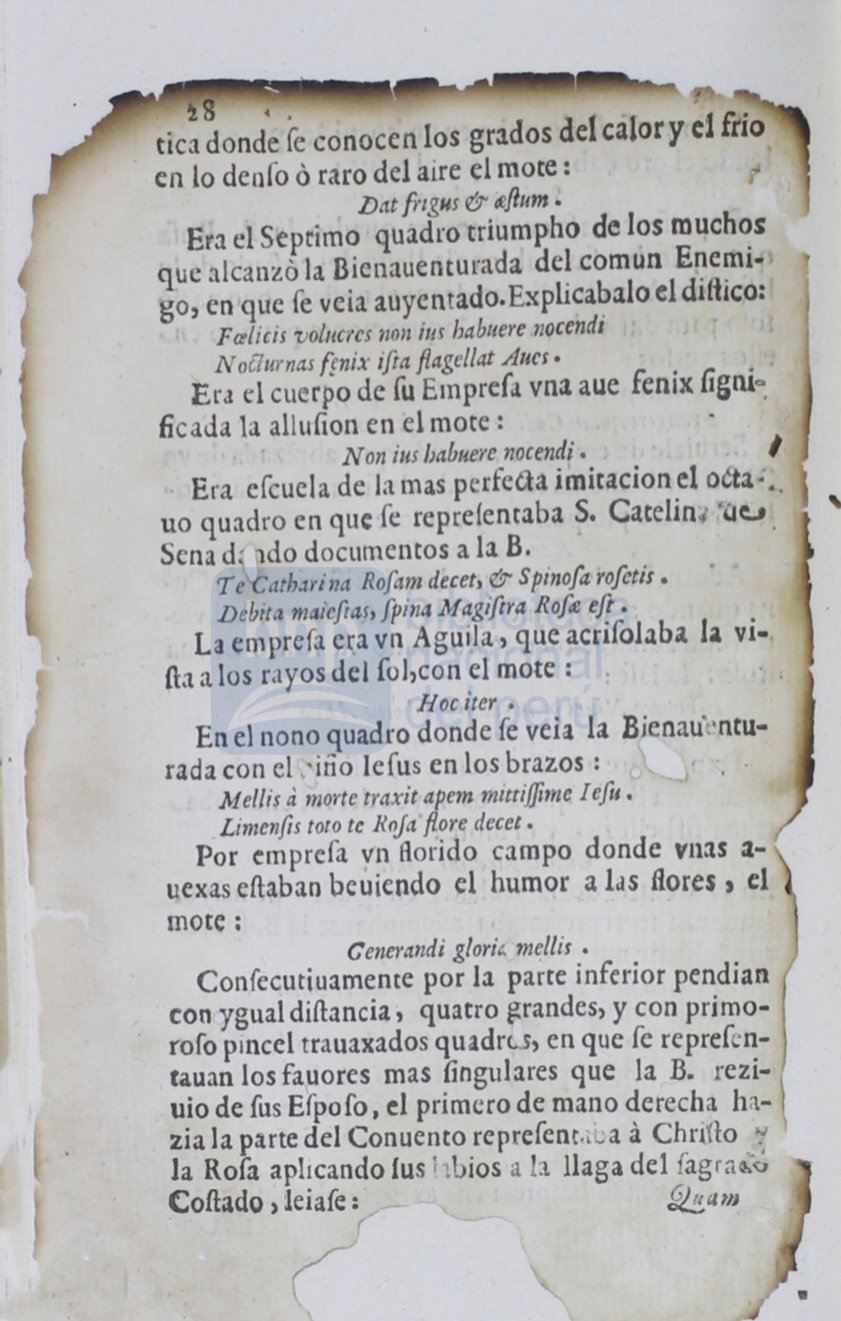 28
tica donde ſe conocen los grados del calor y el frio
en lo denſo ò raro del aire el mote :
Dat frigus & æſtum .
Era el Septimo quadro triumpho de los muchos
que alcanzò la Bienauenturada del comun Enemi-
go, en que ſe veia auyentado. Explicabalo el diſtico:
Fœlicis volucres non ius habuere nocendi
Nocturnas fenix iſta flagellat Aues .
Era el cuerpo de ſu Empreſa vna aue fenix ſigni-
ficada la alluſion en el mote :
Non ius habuere nocendi .
Era eſcuela de la mas perfecta imitacion el octa-
uo quadro en que ſe repreſentaba S. Catelina de
Sena dando documentos a la B.
Te Catharina Roſam decet, & Spinoſa roſetis .
Debita maieſtas, ſpina Magiſtra Roſæ eſt .
La empreſa era vn Aguila , que acriſolaba la vi-
ſta a los rayos del ſol,con el mote :
Hoc iter .
En el nono quadro donde ſe veia la Bienauentu-
rada con el niño Ieſus en los brazos :
Mellis à morte traxit apem mittiſſime Ieſu .
Limenſis toto te Roſa flore decet .
Por empreſa vn florido campo donde vnas a-
uexas eſtaban beuiendo el humor a las flores , el
mote :
Generandi gloria mellis .
Conſecutiuamente por la parte inferior pendian
con ygual diſtancia , quatro grandes, y con primo-
roſo pincel trauaxados quadros, en que ſe repreſen-
tauan los fauores mas ſingulares que la B. rezi-
uio de ſus Eſpoſo, el primero de mano derecha ha-
zia la parte del Conuento repreſentaua à Chriſto y
la Roſa aplicando ſus labios a la llaga del ſagrado
Coſtado , leiaſe :
Quam
biblioteca
nacional
del perú